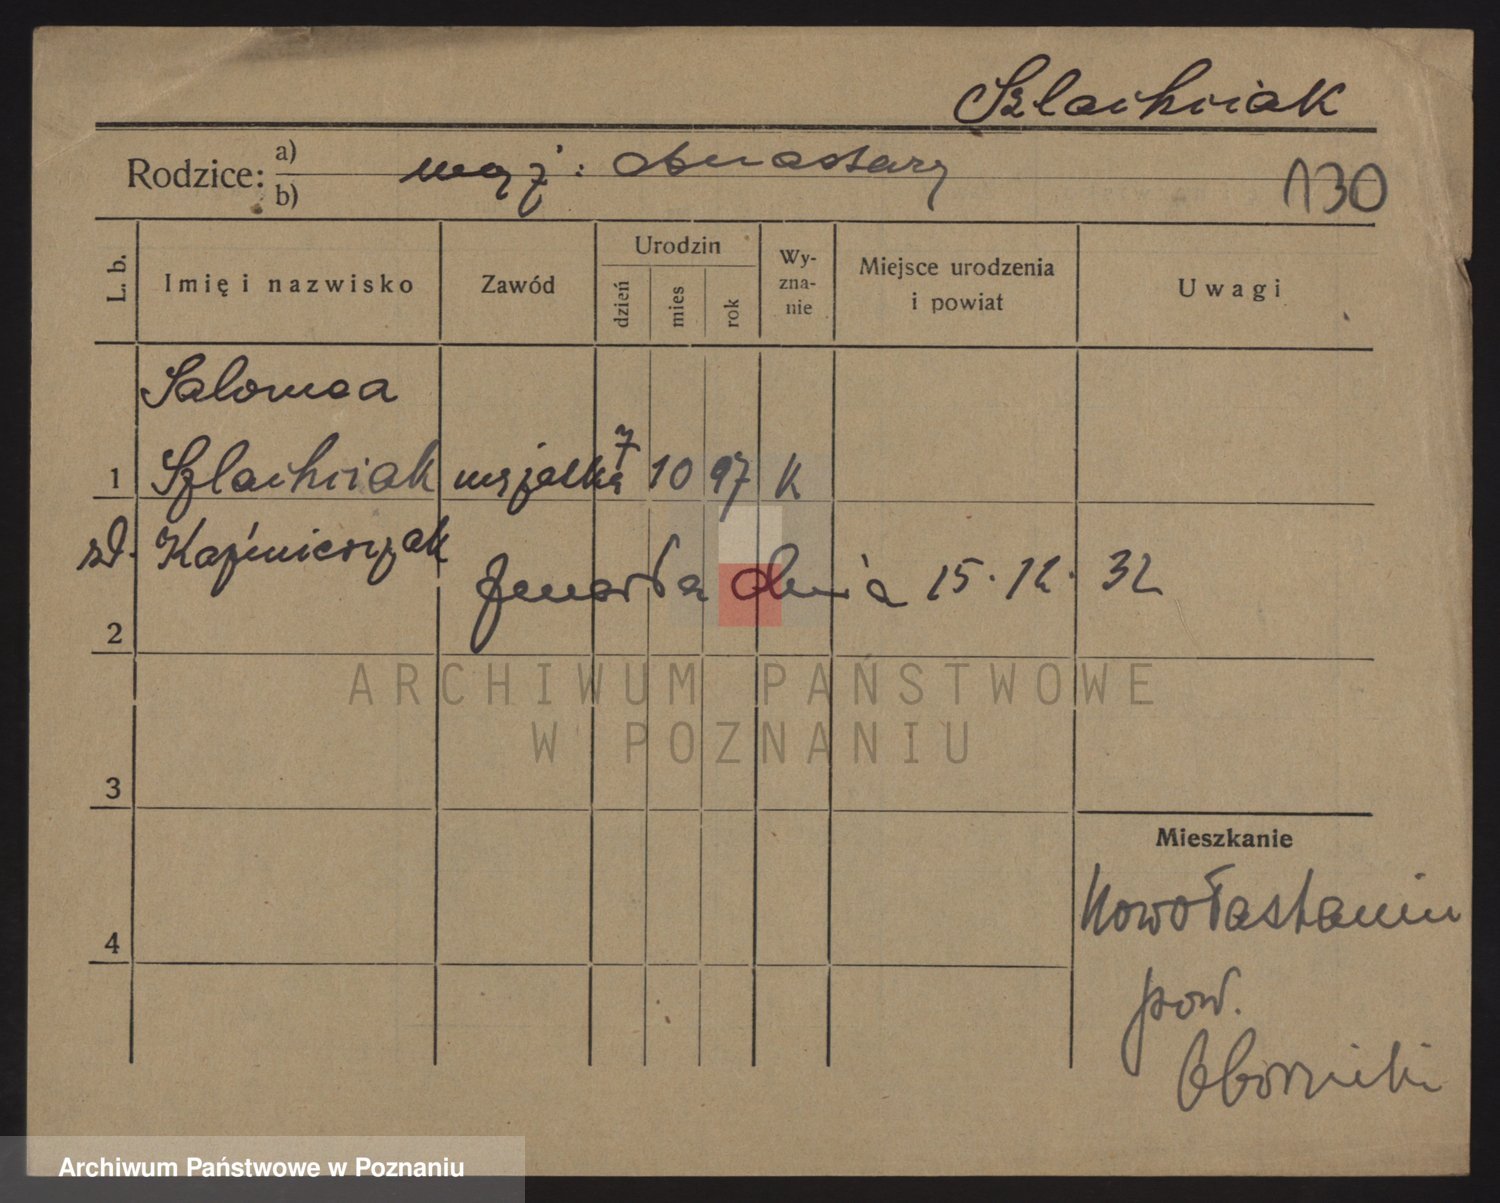 Szlachciak
Rodzice: a) b) mąż: Anastazy
130
L. b.
Imię i nazwisko
Zawód
Urodzin
dzień
mies
rok
Wy-
zna-
nie
Miejsce urodzenia
i powiat
Uwagi
Salomea
1 Szlachciak mężatka 7 10 97 K
zd. Kaźmierczak
zmarła dnia 15. 12. 32
2
3
4
Mieszkanie
pow.
Oborniki
ARCHIWUM PAŃSTWOWE
W POZNANIU
Archiwum Państwowe w Poznaniu